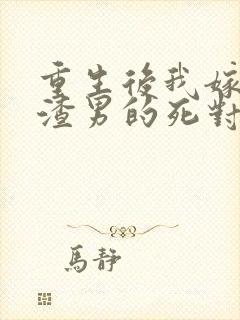 重生後我嫁
渣男的死對
馬靜